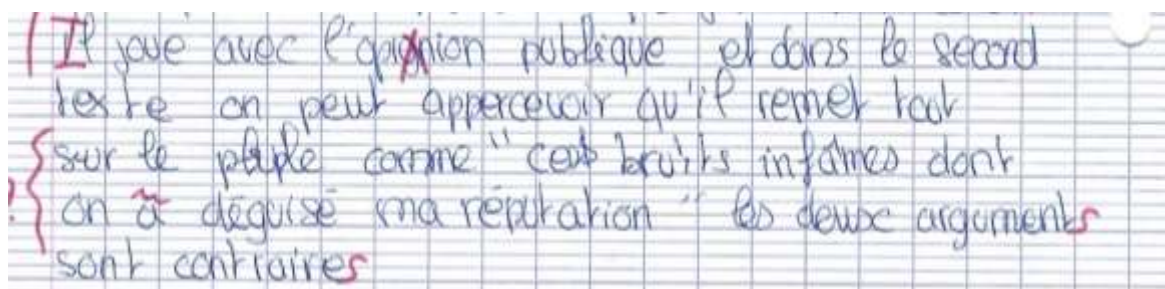 Il joue avec l'opinion publique" et dans le second
texte on peut appercevoir qu'il remet tout
sur le peuple comme "ces bruits infâmes dont
on a déguisé ma réputation" les deux arguments
sont contraires